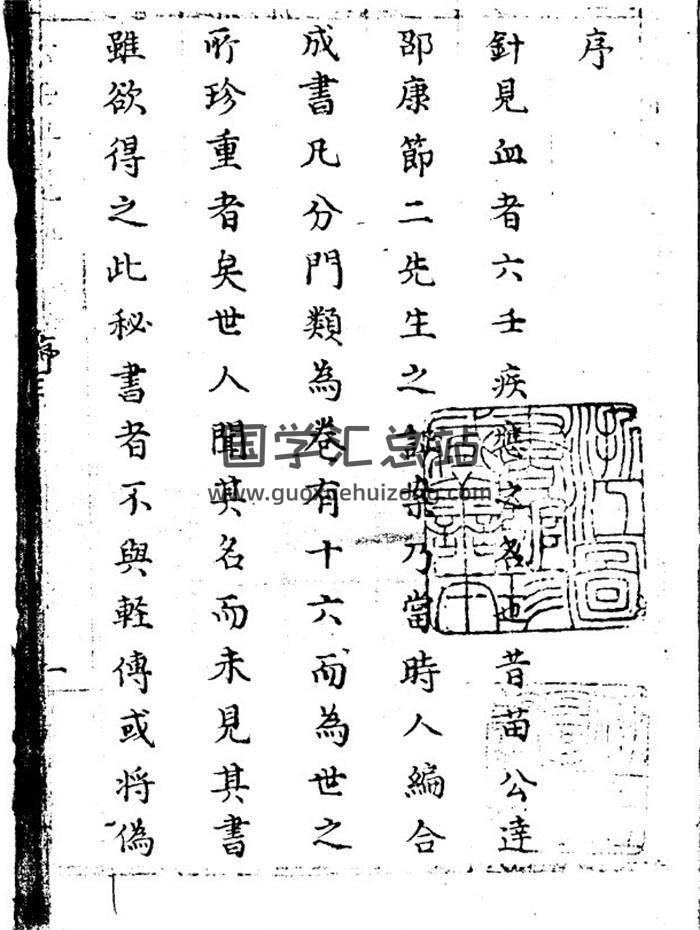 序
針見血者六壬疾應之名也昔苗公達
邵康節二先生之 槩乃當時人編合
成書凡分門類為卷有十六而為世之
所珍重者矣世人聞其名而未見其書
雖欲得之此秘書者不與軽傳或将偽
序
一
国学汇总站
www.guoxuehuizong.com